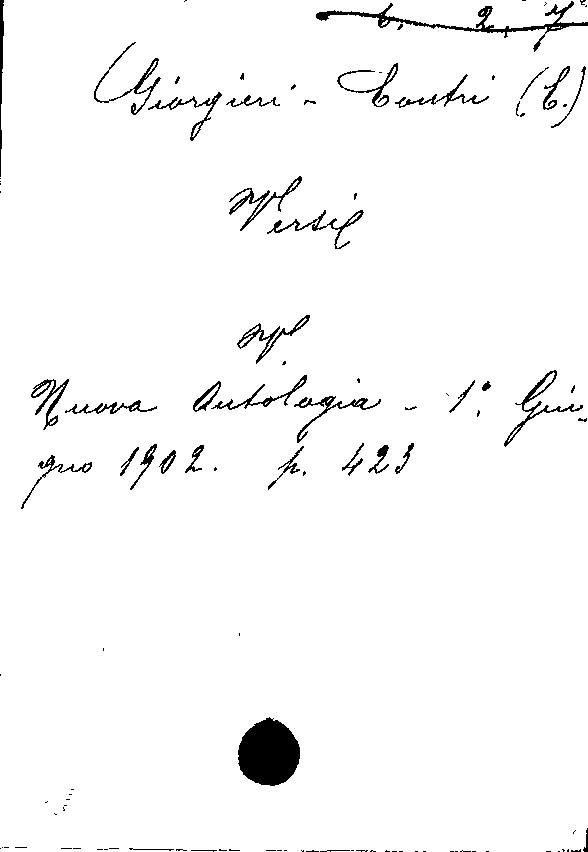 6. 2. 7
Giorgieri - Contri (C.)
Versi
Nuova Antologia - 1° Giu-
gno 1902. p. 423